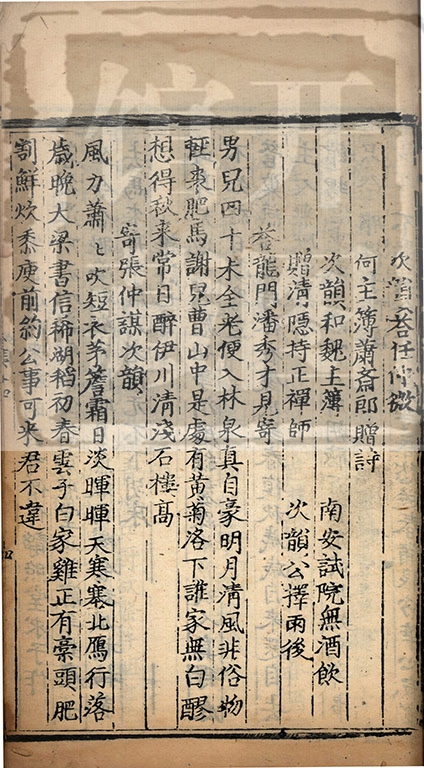 次韻答任仲微
何主簿蕭齋郎贈詩
次韻和魏主簿　南安試院無酒飲
贈清隱持正禪師　次韻公擇雨後
答龍門潘秀才見寄
男兒四十未全老便入林泉真自豪明月清風非俗物
輕裘肥馬謝兒曹山中是處有黃菊洛下誰家無白醪
想得秋来常日醉伊川清淺石樓髙
寄張仲謀次韻
風力蕭〻吹短衣茅簷霜日淡暉暉天寒塞北鴈行落
歳晚大梁書信稀湖稻初舂雲子白家雞正有藁頭肥
割鮮炊黍庾前約公事可来君不違
四